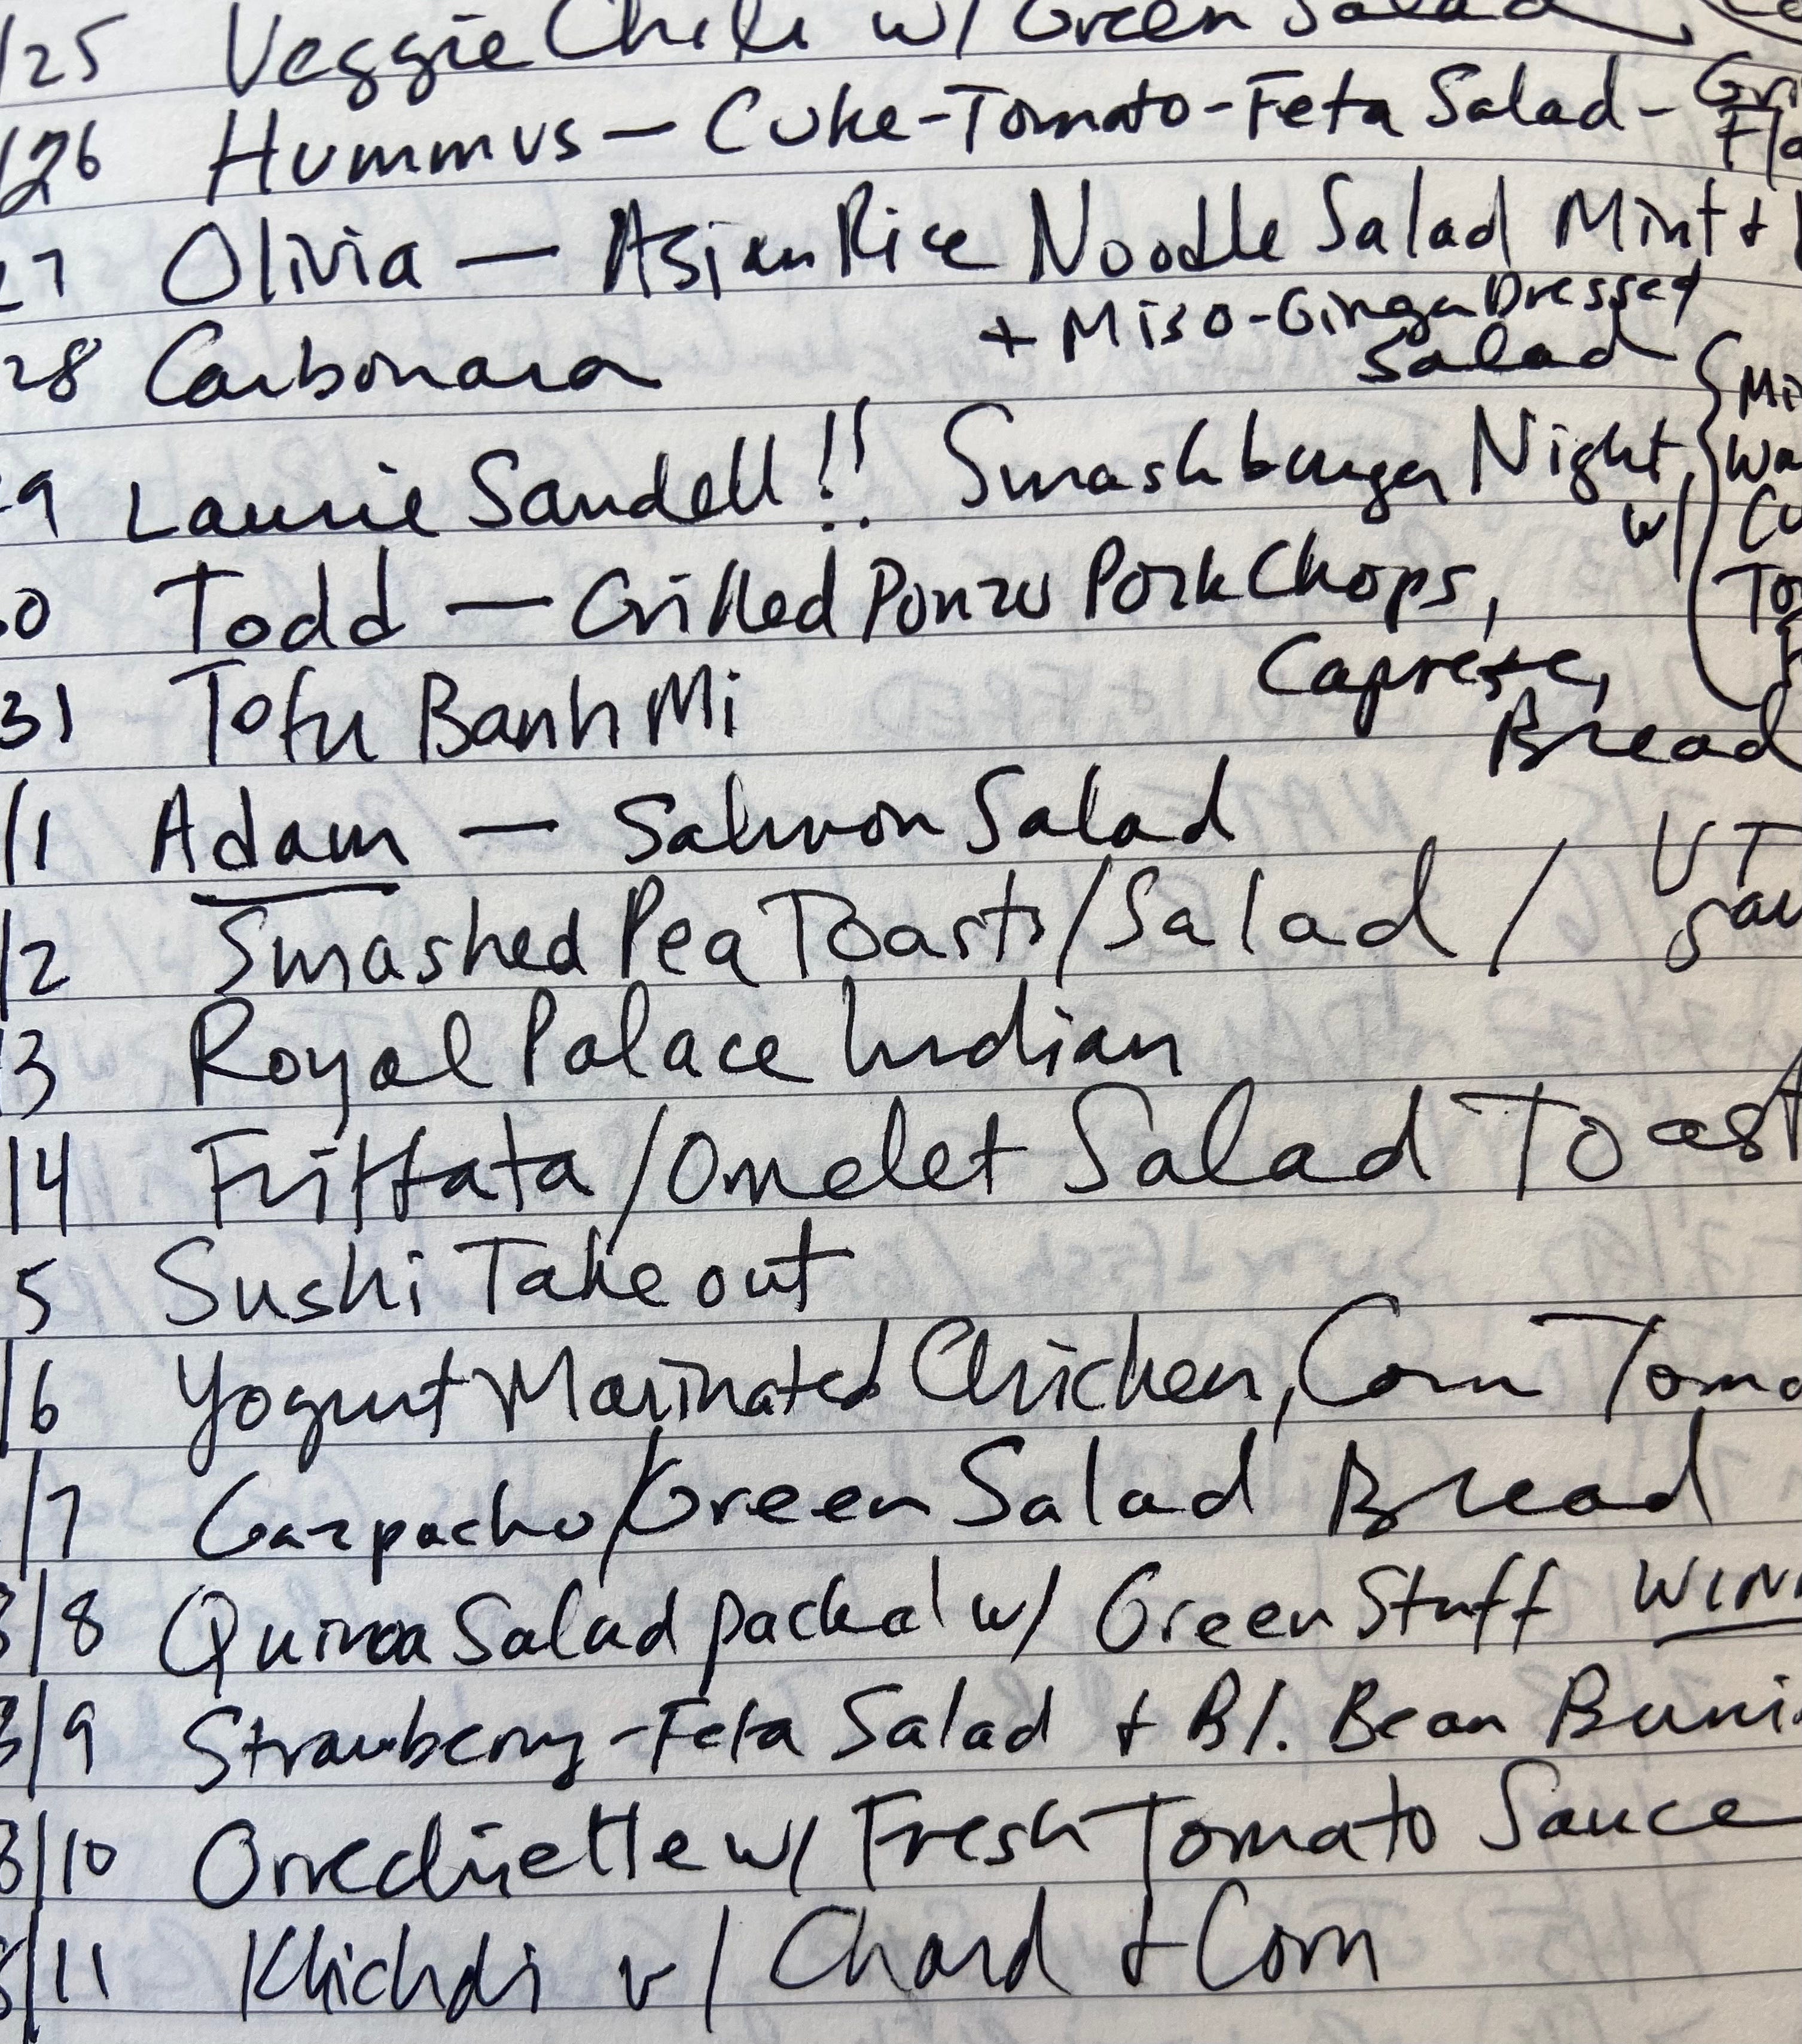 /25 Veggie Chili w/ Green Salad
/26 Hummus — Cuke-Tomato-Feta Salad -
27 Olivia — Asian Rice Noodle Salad Mint +
+ Miso-Ginger Dressed
Salad
28 Carbonara
29 Laurie Sandell!! Smashburger Night,
w/
30 Todd — Grilled Ponzu Pork Chops,
Caprese,
Bread
31 Tofu Banh Mi
/1 Adam — Salmon Salad
/2 Smashed Pea Toasts/Salad /
/3 Royal Palace Indian
/4 Frittata/Omelet Salad Toast
5 Sushi Takeout
/6 Yogurt Marinated Chicken, Corn Toma
/7 Gazpacho/Green Salad Bread
8/8 Quinoa Salad packed w/ Green Stuff
8/9 Strawberry-Feta Salad + Bl. Bean
8/10 Orecchiette w/ Fresh Tomato Sauce
8/11 Khichdi w/ Chard + Corn